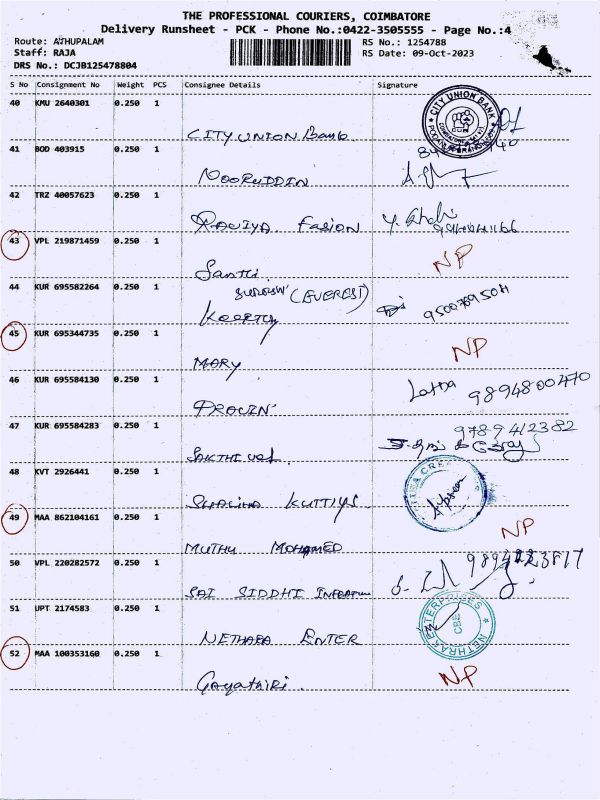 THE PROFESSIONAL COURIERS, COIMBATORE
Delivery Runsheet - PCK - Phone No.:0422-3505555 - Page No.:4
Route: ATHUPALAM RS No.: 1254788
Staff: RAJA RS Date: 09-Oct-2023
DRS No.: DCJB125478804
S No Consignment No Weight PCS Consignee Details Signature
40 KMU 2640301 0.250 1
CITY UNION Bank
CITY UNION BANK
41 BOD 403915 0.250 1
NOORUDDIN
42 TRZ 40057623 0.250 1
RAVIYA Fasion
43 VPL 219871459 0.250 1 NP
Santhi
44 KUR 695582264 0.250 1
(EVEREST)
Keerthy 9500709504
45 KUR 695344735 0.250 1 NP
MARY
46 KUR 695584130 0.250 1 Latha 9894800470
PRAVIN
47 KUR 695584283 0.250 1 9789412382
SAKTHIVEL
48 KVT 2926441 0.250 1
KUTTIYS
49 MAA 862104161 0.250 1 NP
MUTHU MOHAMED
50 VPL 220282572 0.250 1
SAI SIDDHI
51 UPT 2174583 0.250 1
NETHRAA ENTER
NETHRAA ENTERPRISES
CBE
52 MAA 100353160 0.250 1 NP
Gayathiri.